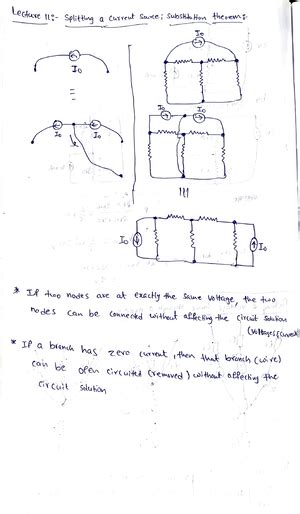 Lecture 11:- Splitting a Current Source; Substitution theorem:
I0
I0 I0
I0
I0 I0
I0 I0
* If two nodes are at exactly the same voltage, the two
nodes can be connected without affecting the circuit solution
(Voltages, Current)
* If a branch has zero current, then that branch (wire)
can be open circuited (removed) without affecting the
circuit solution